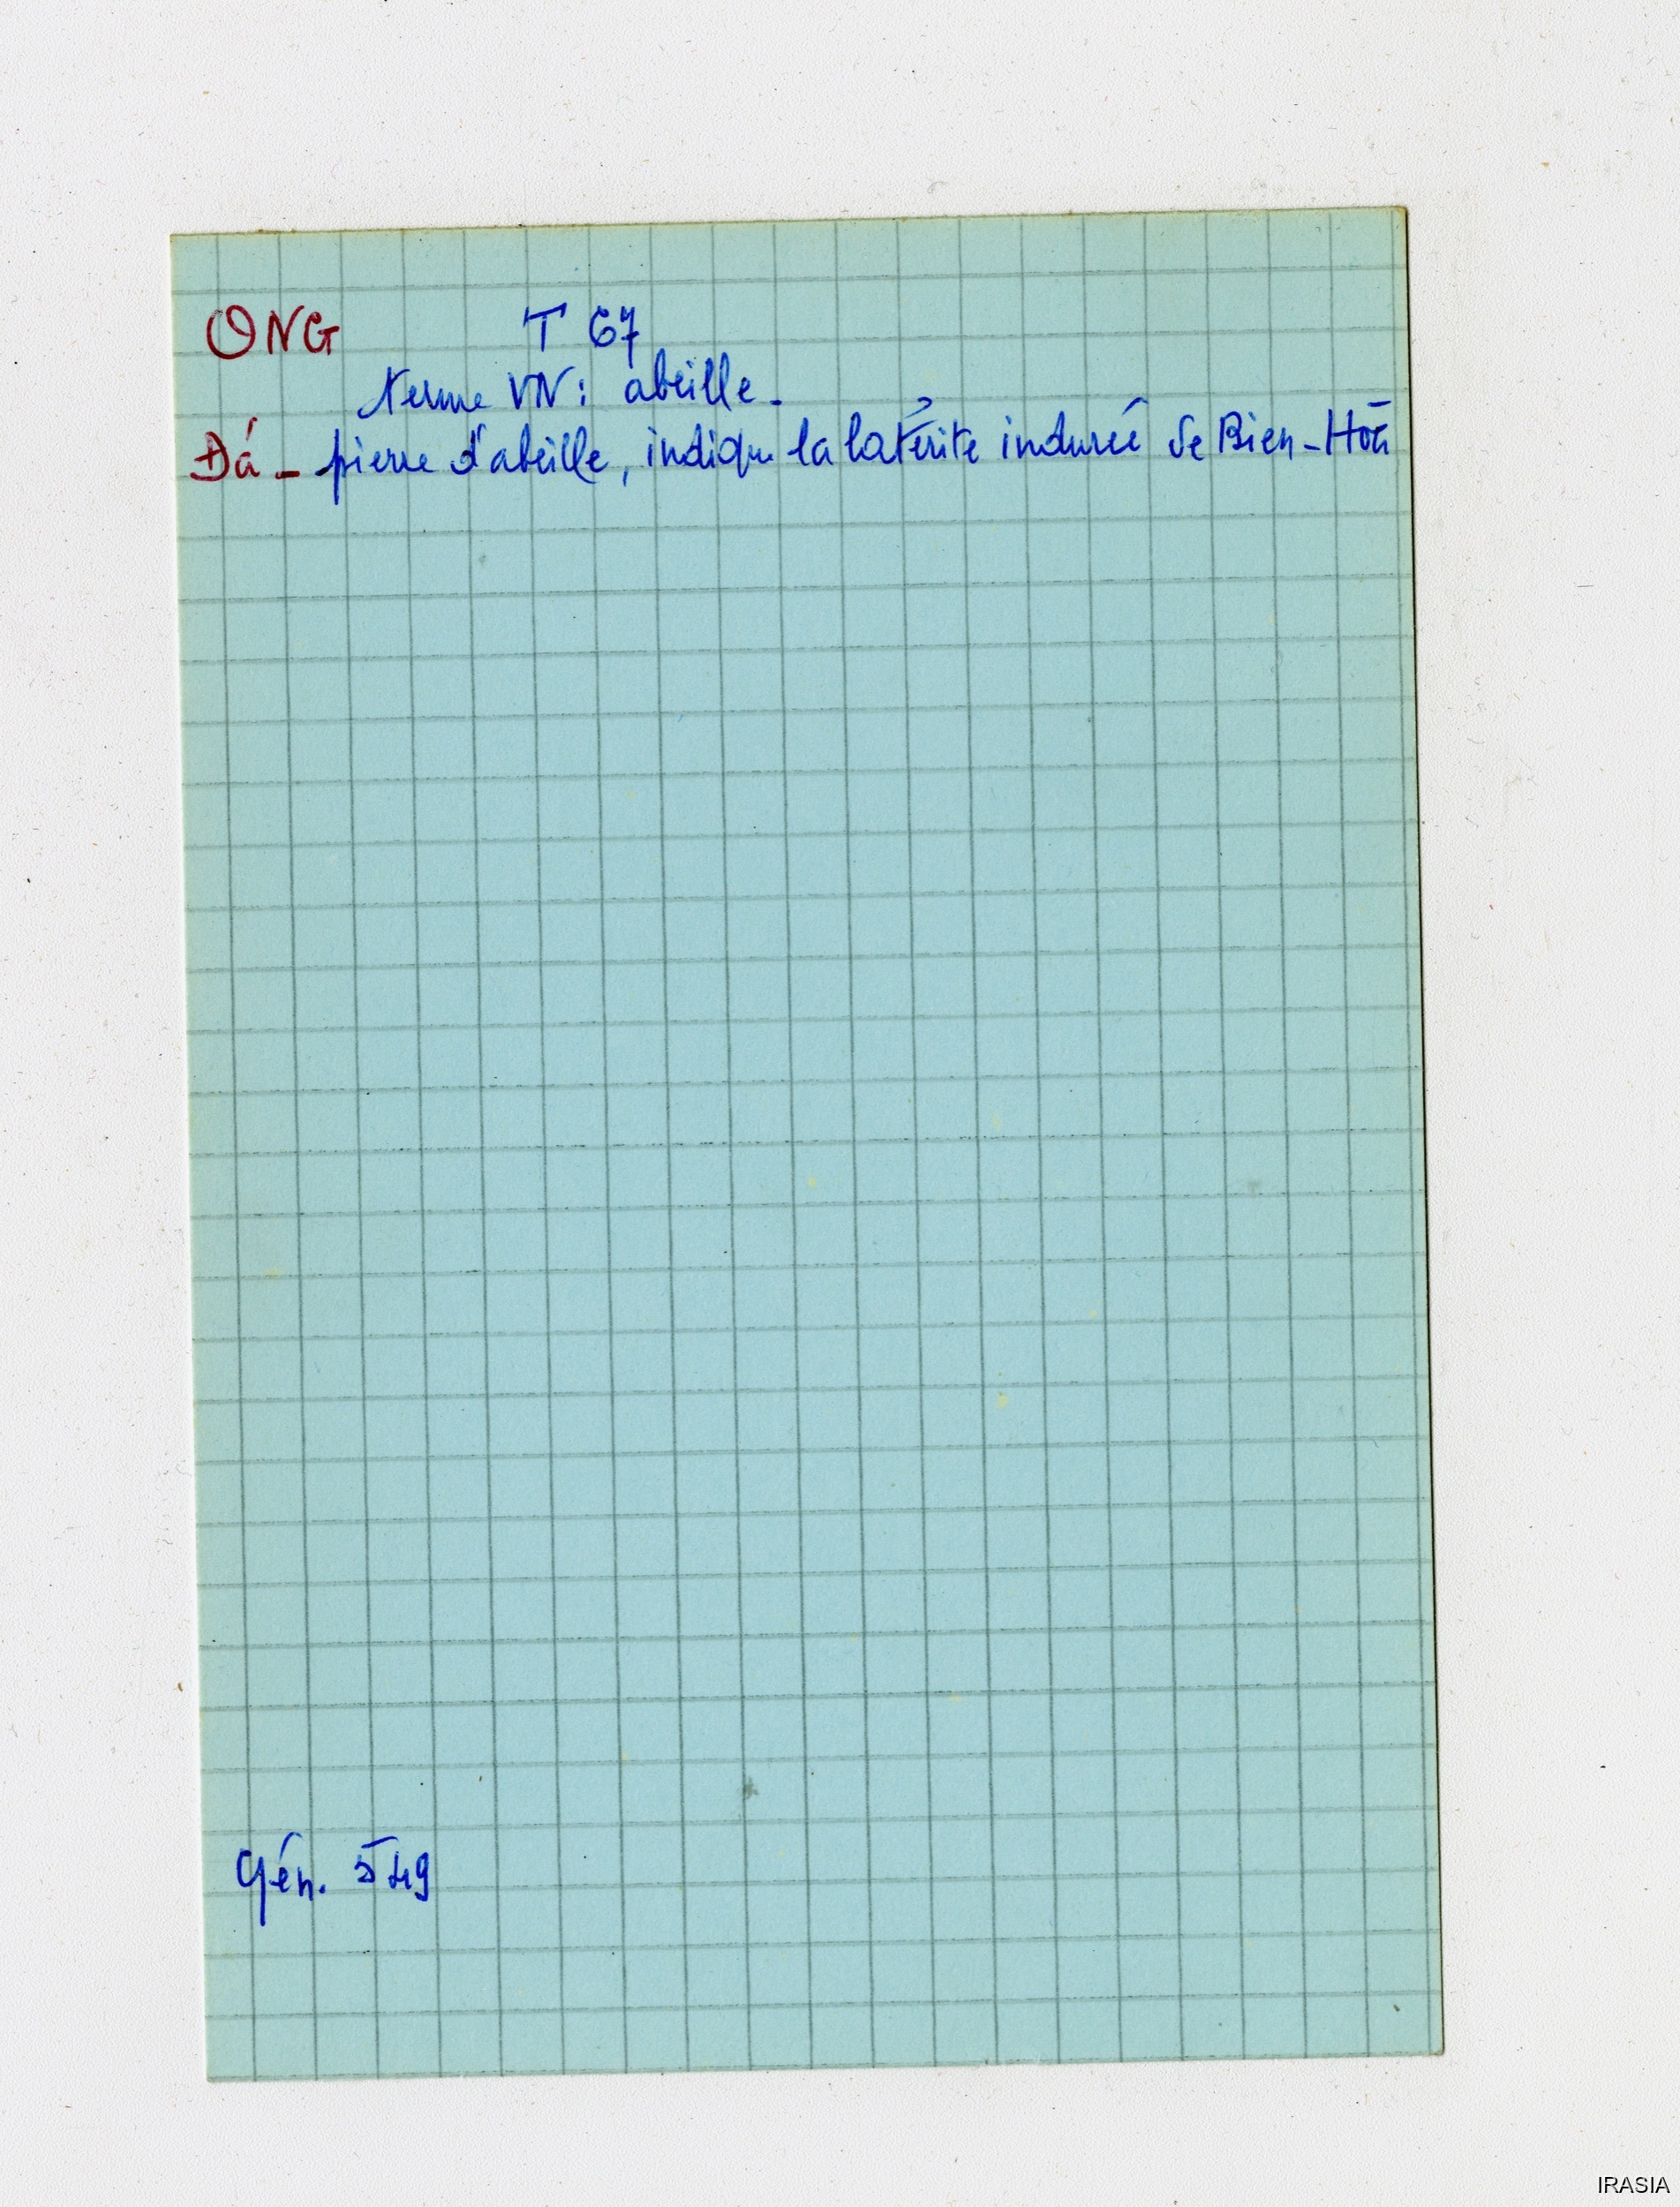 ONG T 67
terme VN : abeille -
Đá - pierre d'abeille, indique la latérite indurée de Bien-Hoà
Gén. 549
IRASIA